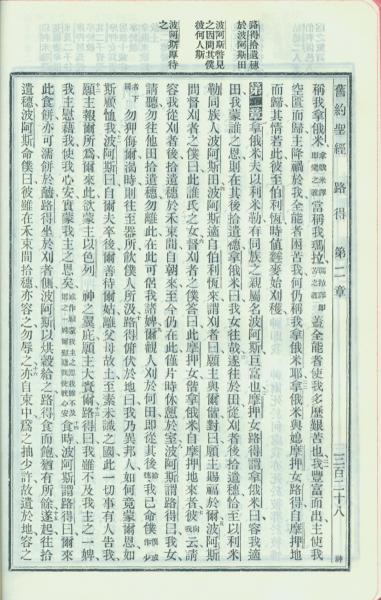 路得拾遺穗
於波阿斯田
波阿斯詧見
之因問其僕
彼何人斯
波阿斯厚待
之
舊約聖經 路得 第二章 三百二十八
稱我拿俄米拿俄米譯即樂之義當稱我瑪拉瑪拉譯即苦之義蓋全能者使我多歷艱苦也我豐富而出主使我
空匱而歸主降禍於我全能者困苦我何仍稱我拿俄米耶拿俄米與媳摩押女路得自摩押地
而歸其情若此彼至伯利恆時値麰麥始刈穫
第二章拿俄米夫以利米勒有同族之親屬名波阿斯巨富也摩押女路得謂拿俄米曰容我適
田我蒙誰之恩則在其後拾遺穗拿俄米曰我女往哉遂往於田從刈者後拾遺穗恰至以利米
勒同族人波阿斯田波阿斯適自伯利恆來謂刈者曰願主與爾偕對曰願主賜福於爾波阿斯
問督刈者之僕曰此誰氏之女督刈者之僕答曰此摩押女偕拿俄米自摩押地來者彼云請
容我從刈者後拾遺穗於禾束間自朝來至今仍在此僅片時休憩於室波阿斯謂路得曰我女
請聽勿往他田拾遺穗勿離此在此可侶我諸婢爾觀人刈於何田即從其後我已命僕
勿狎侮爾渴時則往至器所飲僕人所汲路得俯伏於地曰我乃異邦人如何竟蒙爾恩如
斯顧恤我波阿斯曰自爾夫卒後爾善待爾姑離父母故土至素未識之國此一切事有人告我
願主報爾所爲爾來此欲蒙主以色列 神之翼庇願主大賚爾路得曰我雖不及我主之一婢
我主恩藉我使我心安實蒙我主之恩矣食時波阿斯謂路得曰爾來
此食餅亦可濡餅於醯路得坐於刈者側波阿斯以烘穀給之路得食而飽猶有所餘遂起往拾
遺穗波阿斯命僕曰彼雖在禾束間拾穗亦容之勿辱之亦自束中爲之抽少許故遺於地容之